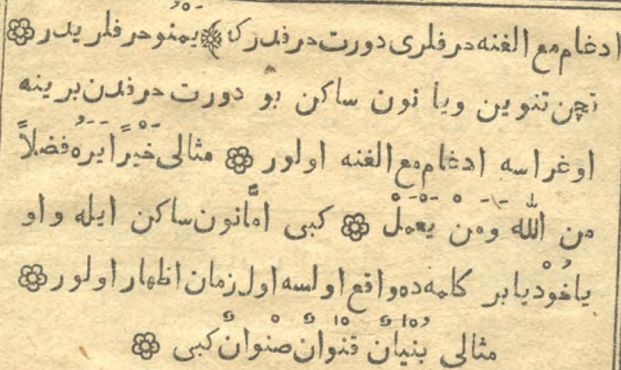 ادغام مع الغنه حرفلرى دورت حرفدر كه يَمْنُو حرفلريدر
قچن تنوين ويا نون ساكن بو دورت حرفدن برينه
اوغراسه ادغام مع الغنه اولور ۞ مثالى خَيْرًا يَرَهُ فضلاً
من اللّٰه ومَنْ يَعْمَلْ ۞ كبى امّا نون ساكن ايله واو
ياخُوْد يا بر كلمه ده واقع اولسه اول زمان اظهار اولور ۞
مثالى بُنْيَانٌ قِنْوَانٌ صِنْوَانٌ كبى ۞